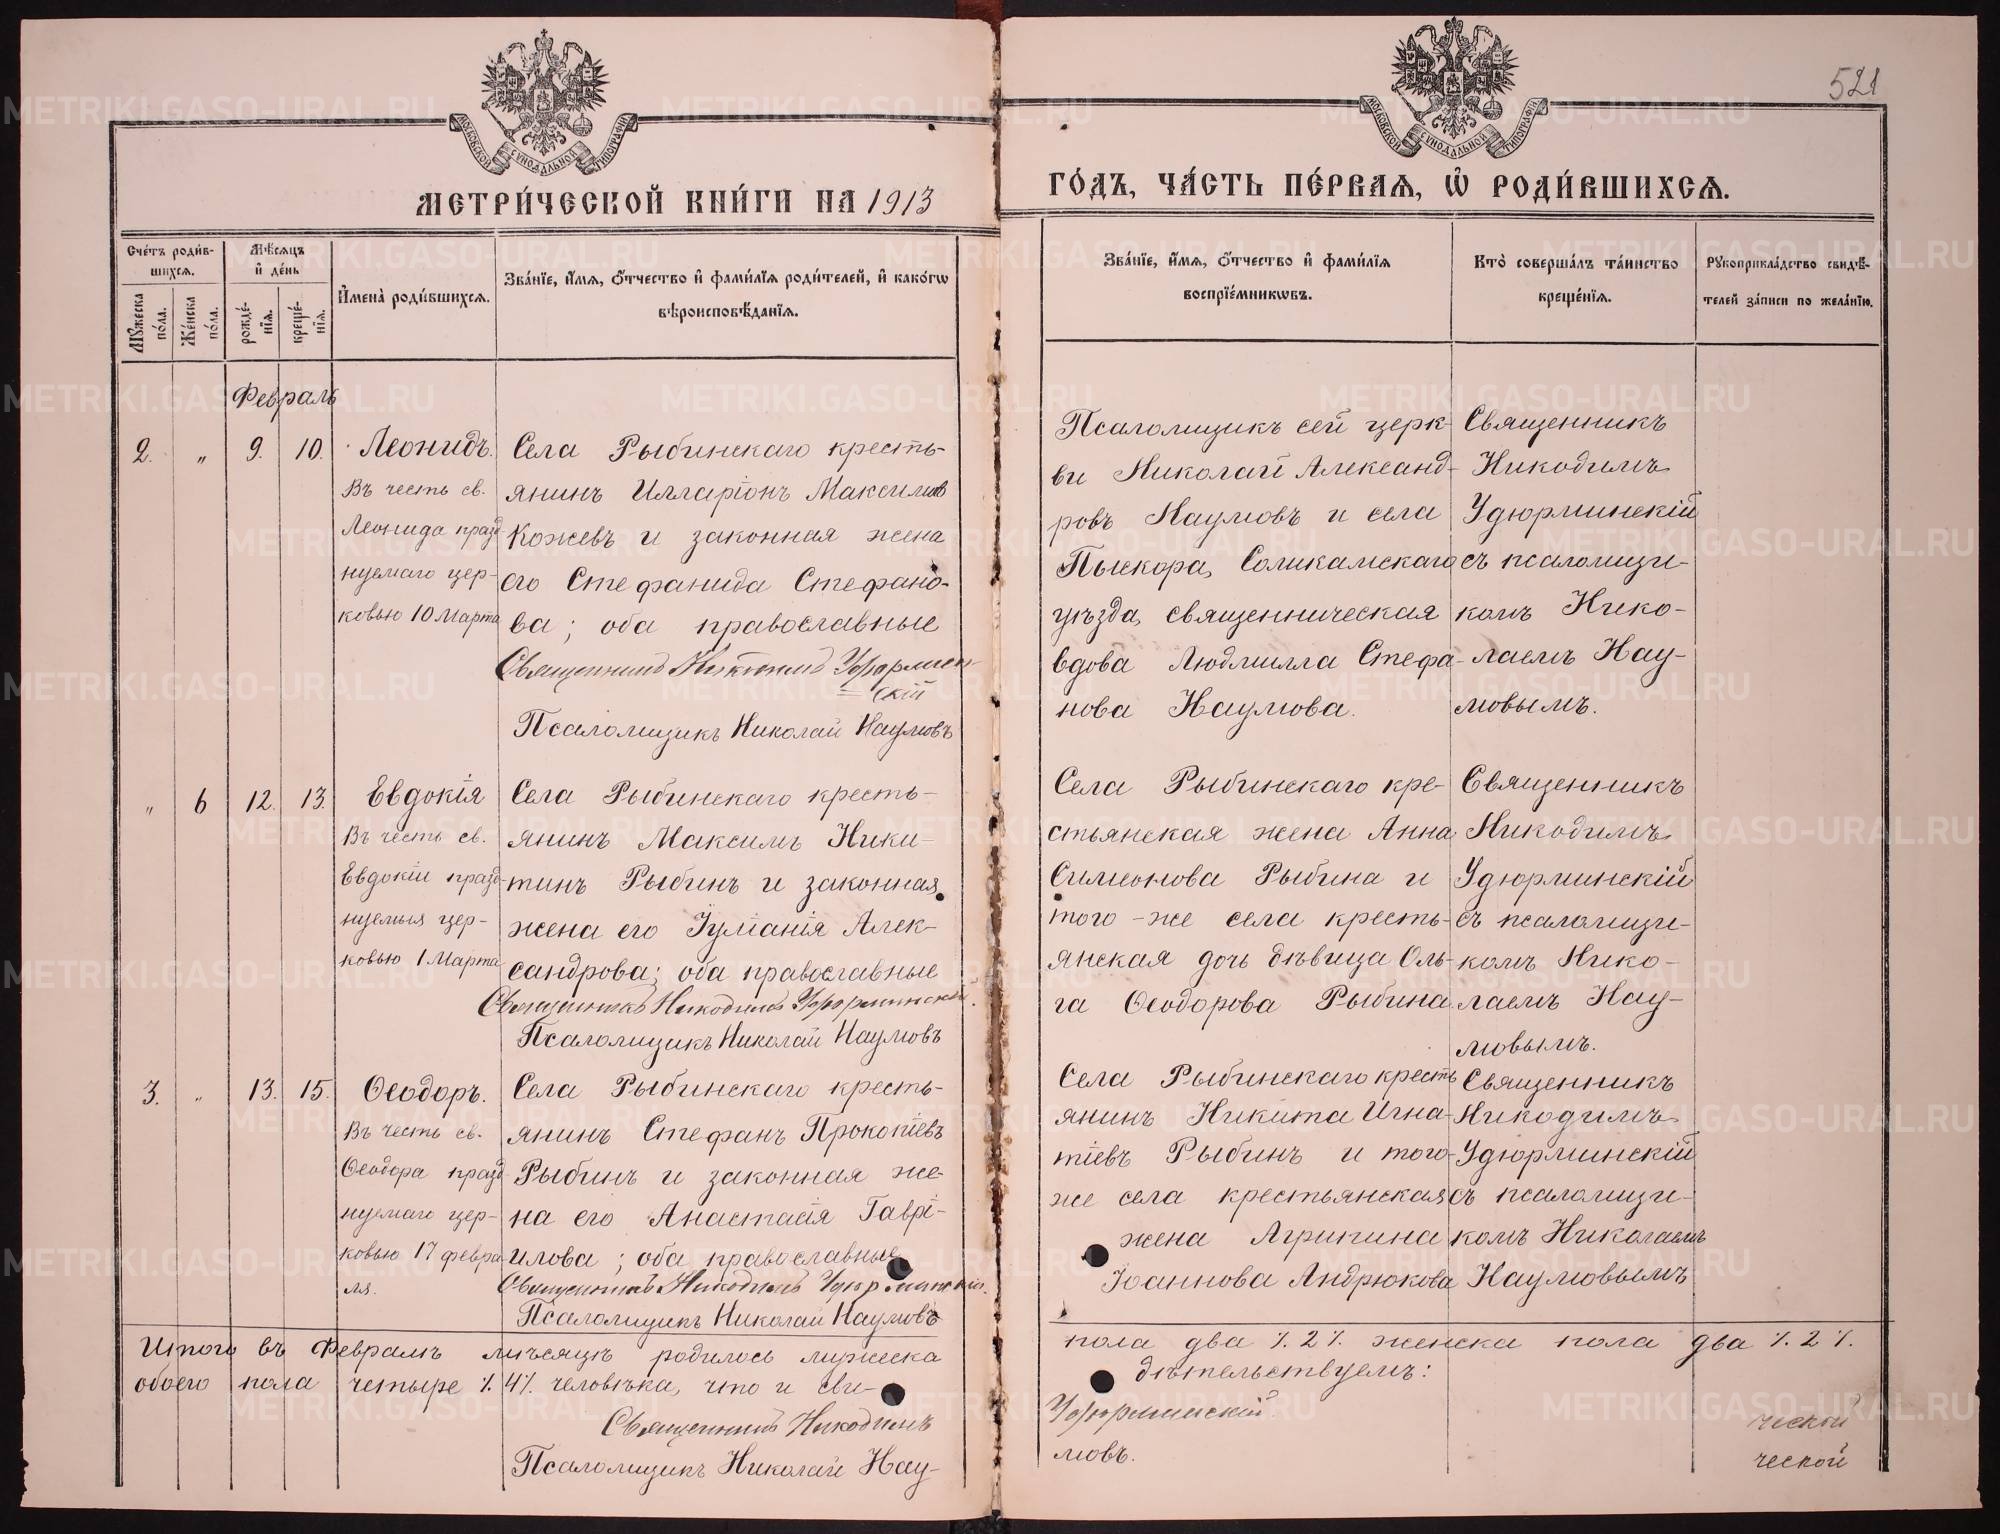 521
МОСКОВСКОЙ СУНОДАЛЬНОЙ ТИПОГРАФІИ
МОСКОВСКОЙ СУНОДАЛЬНОЙ ТИПОГРАФІИ
МЕТРИ́ЧЕСКОЙ КНИ́ГИ НА 1913
ГО́ДЪ, ЧА́СТЬ ПЕ́РВАЯ, Ѡ҆ РОДИ́ВШИХСЯ.
Сче́тъ роди́в-
шихся.
Мꙋжеска по́ла.
Же́нска по́ла.
Мѣ́сяцъ
и҆ де́нь
рожде́-
нїя.
креще́-
нїя.
И҆мена̀ роди́вшихся.
Зва́нїе, и҆́мя, ѻ҆́тчество и҆ фами́лїя роди́телей, и҆ како́гѡ
вѣроисповѣ́данїя.
Зва́нїе, и҆́мя, ѻ҆́тчество и҆ фами́лїя
воспрїе́мникѡвъ.
Кто̀ соверша́лъ та́инство
креще́нїя.
Рꙋкоприкла́дство свидѣ́-
телей за́писи по жела́нїю.
Февраль
2. „ 9. 10.
Леонидъ.
Въ честь св.
Леонида празд-
нуемаго цер-
ковью 10 Марта
Села Рыбинскаго кресть-
янинъ Илларіонъ Максимов
Кожевъ и законная жена
его Стефанида Стефано-
ва; оба православные
Священникъ Никодимъ Удюрмин-
скій
Псаломщикъ Николай Наумовъ
Псаломщикъ сей церк-
ви Николай Александ-
ровъ Наумовъ и села
Пыскора, Соликамскаго
уѣзда, священническая
вдова Людмилла Стефа-
нова Наумова.
Священникъ
Никодимъ
Удюрминскій
съ псаломщи-
комъ Нико-
лаемъ Нау-
мовымъ.
„ 6 12. 13.
Евдокія
Въ честь св.
Евдокіи празд-
нуемыя цер-
ковью 1 Марта
Села Рыбинскаго кресть-
янинъ Максимъ Ники-
тинъ Рыбинъ и законная
жена его Іуліанія Алек-
сандрова; оба православные
Священникъ Никодимъ Удюрминскій.
Псаломщикъ Николай Наумовъ
Села Рыбинскаго кре-
стьянская жена Анна
Симеонова Рыбина и
того-же села кресть-
янская дочь дѣвица Оль-
га Ѳеодорова Рыбина.
Священникъ
Никодимъ
Удюрминскій
съ псаломщи-
комъ Нико-
лаемъ Нау-
мовымъ.
3. „ 13. 15.
Ѳеодоръ.
Въ честь св.
Ѳеодора празд
нуемаго цер-
ковью 17 февра
ля.
Села Рыбинскаго кресть-
янинъ Стефанъ Прокопіевъ
Рыбинъ и законная же-
на его Анастасія Гаврі-
илова; оба православные
Священникъ Никодимъ Удюрминскій.
Псаломщикъ Николай Наумовъ
Села Рыбинскаго кресть
янинъ Никита Игна-
тіевъ Рыбинъ и того-
же села крестьянская
жена Агрипина
Іоаннова Андрюкова
Священникъ
Никодимъ
Удюрминскій
съ псаломщи-
комъ Николаемъ
Наумовымъ
Итого въ Февралѣ мѣсяцѣ родилось мужеска
пола два ٪ 2 ٪. женска пола два ٪ 2 ٪.
обоего пола четыре ٪ 4٪. человѣка, что и сви-
дѣтельствуемъ:
Священникъ Никодимъ
Удюрминскій
Псаломщикъ Николай Нау-
мовъ.
ческой
ческой
METRIKI.GASO-URAL.RU